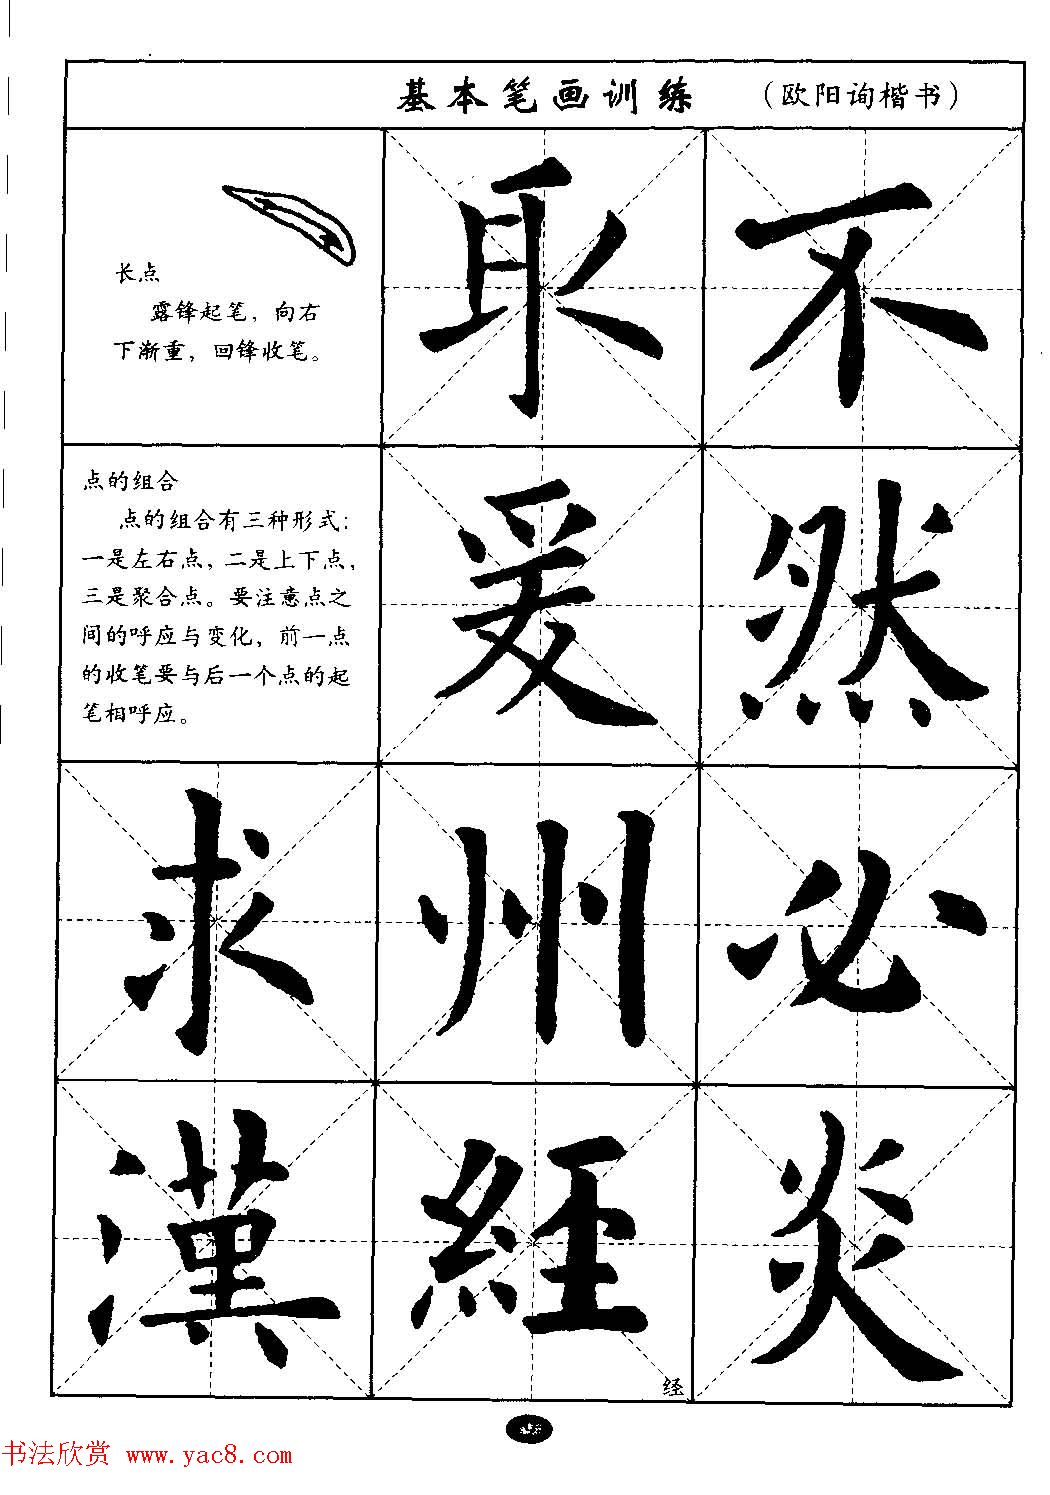 基本笔画训练 （欧阳询楷书）
长点
露锋起笔，向右
下渐重，回锋收笔。
取 不
点的组合
点的组合有三种形式：
一是左右点，二是上下点，
三是聚合点。要注意点之
间的呼应与变化，前一点
的收笔要与后一个点的起
笔相呼应。
爰 然
求 州 必
漢 經 炎
经
书法欣赏 www.yac8.com